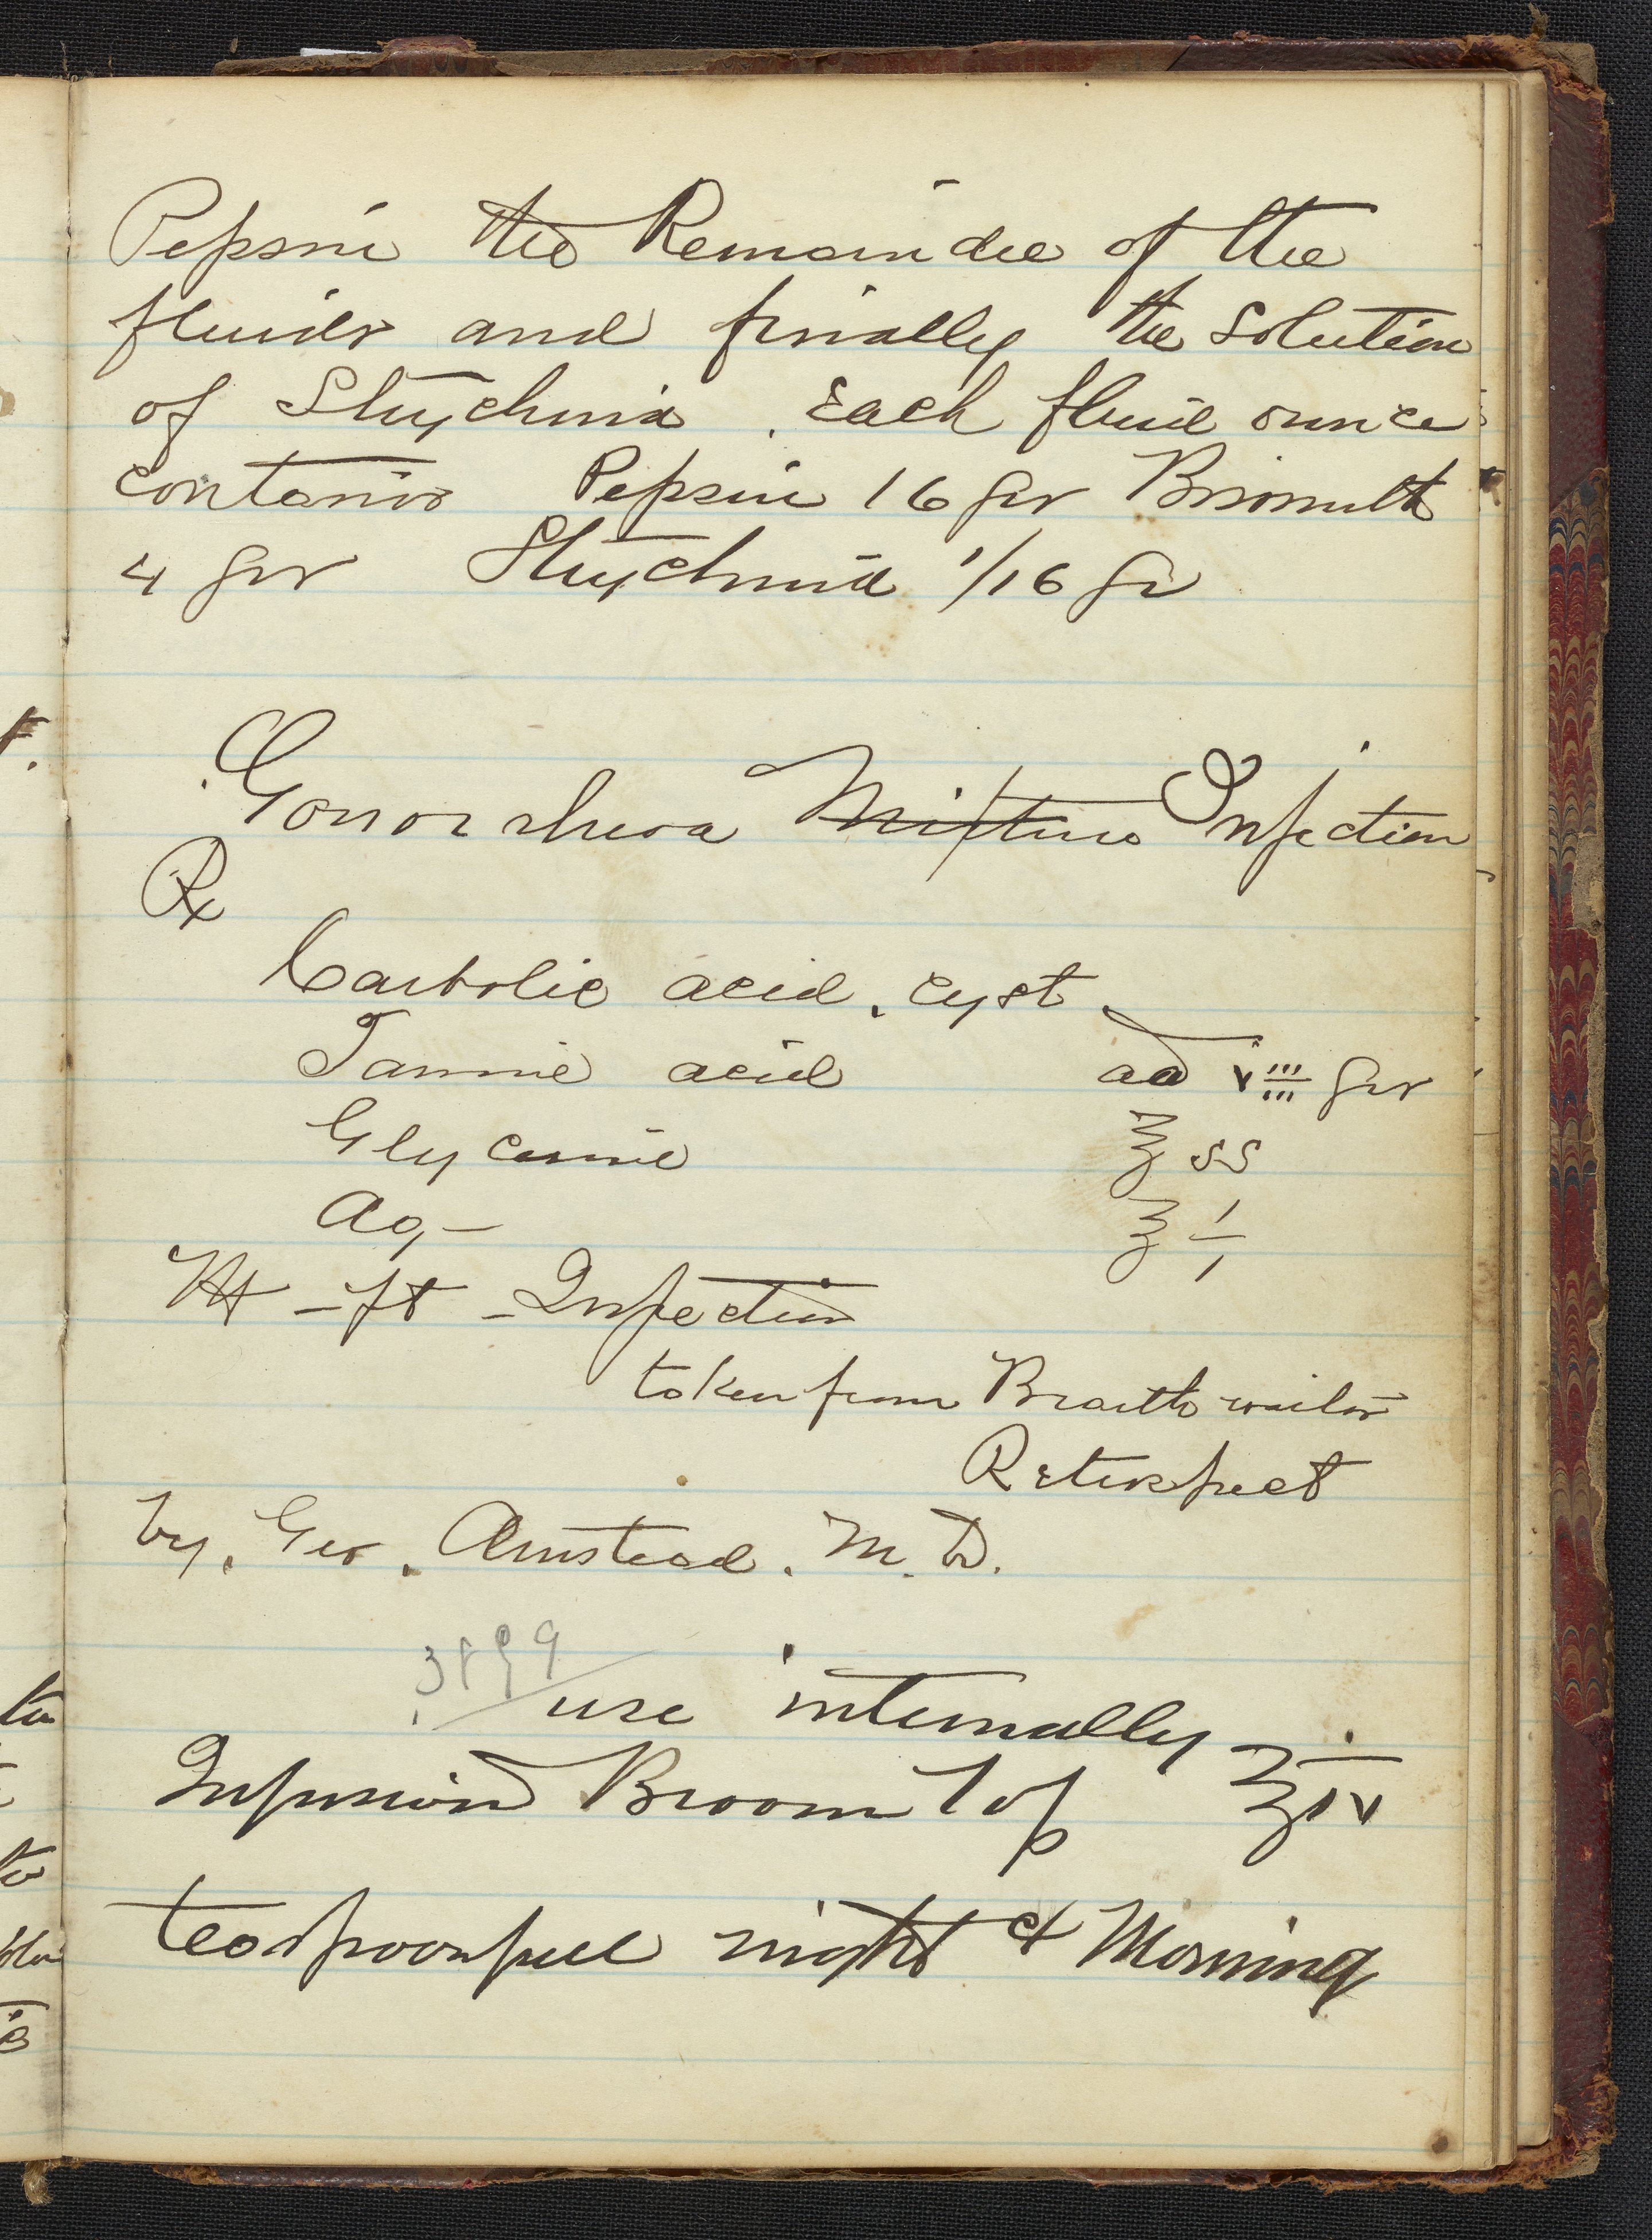 Pepsin the Remainder of the
fluids and finally the Solution
of Strychnia. Each fluid ounce
contains Pepsin 16 grs Bismuth
4 grs Strychnia 1/16 gr
Gonorrhoea Mixture Injection
℞
Carbolic acid. cryst
Tannic acid aa viii grs
Glycerine ℥ ss
Aq— ℥ i
Mt – ft – Injection
taken from Braithwaites
Retrospect
by. Geo. Armstead. M.D.
use internally
Infusion Broom Top ℥ iv
teaspoonfull night & Morning